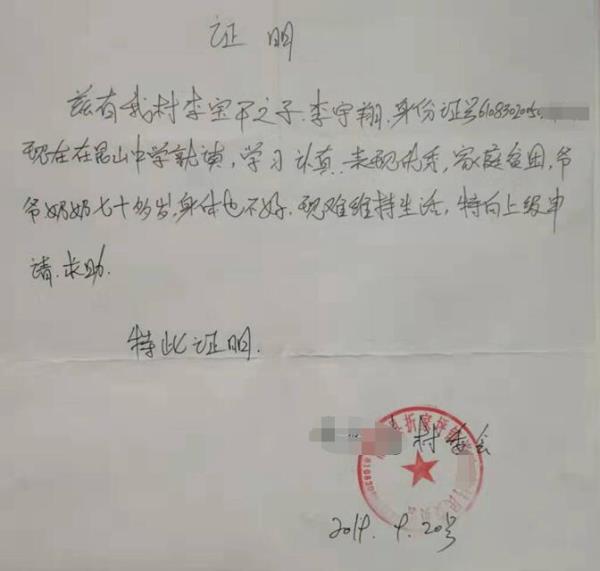 证 明
兹有我村李宝平之子.李宇翔.身份证号6108302005
现在在昆山中学就读,学习认真.表现优秀,家庭贫困,爷
爷奶奶七十多岁.身体也不好.现难维持生活,特向上级申
请.求助.
特此证明.
村委会
折家坪镇
2019.9.20号